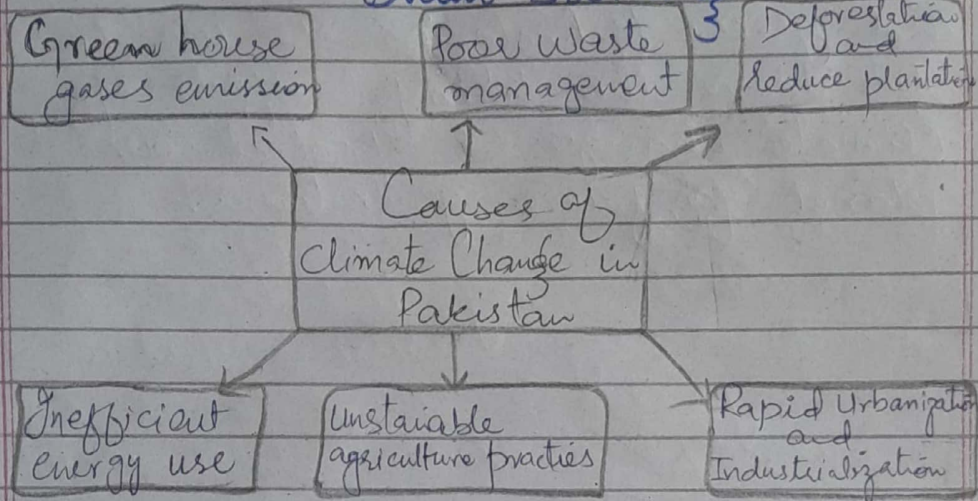 Green house
gases emission
Poor Waste
management
3
Deforestation
and
reduce plantation
Causes of
Climate Change in
Pakistan
Inefficient
energy use
Unstaiable
agriculture practies
Rapid Urbanization
and
Industrialization